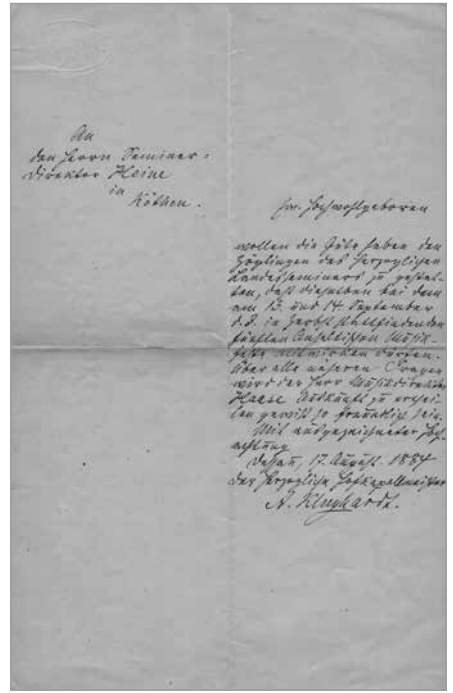 An
den Herrn Seminar-
direktor Heine
in
Köthen.
Ew. Hochwohlgeboren
wollen die Güte haben den
Zöglingen des Herzoglichen
Landesseminars zu gestat-
ten, daß dieselben bei dem
am 13. und 14. September
d. J. in Zerbst stattfindenden
fünften Anhaltischen Musik-
feste mitwirken dürfen.
Über alle näheren Fragen
wird der Herr Musikdirektor
Haase Auskunft zu erthei-
len gewiß so freundlich sein.
Mit ausgezeichneter Hoch-
achtung
Dessau, 17. August. 1884
Der Herzogliche Hofkapellmeister
A. Klughardt.